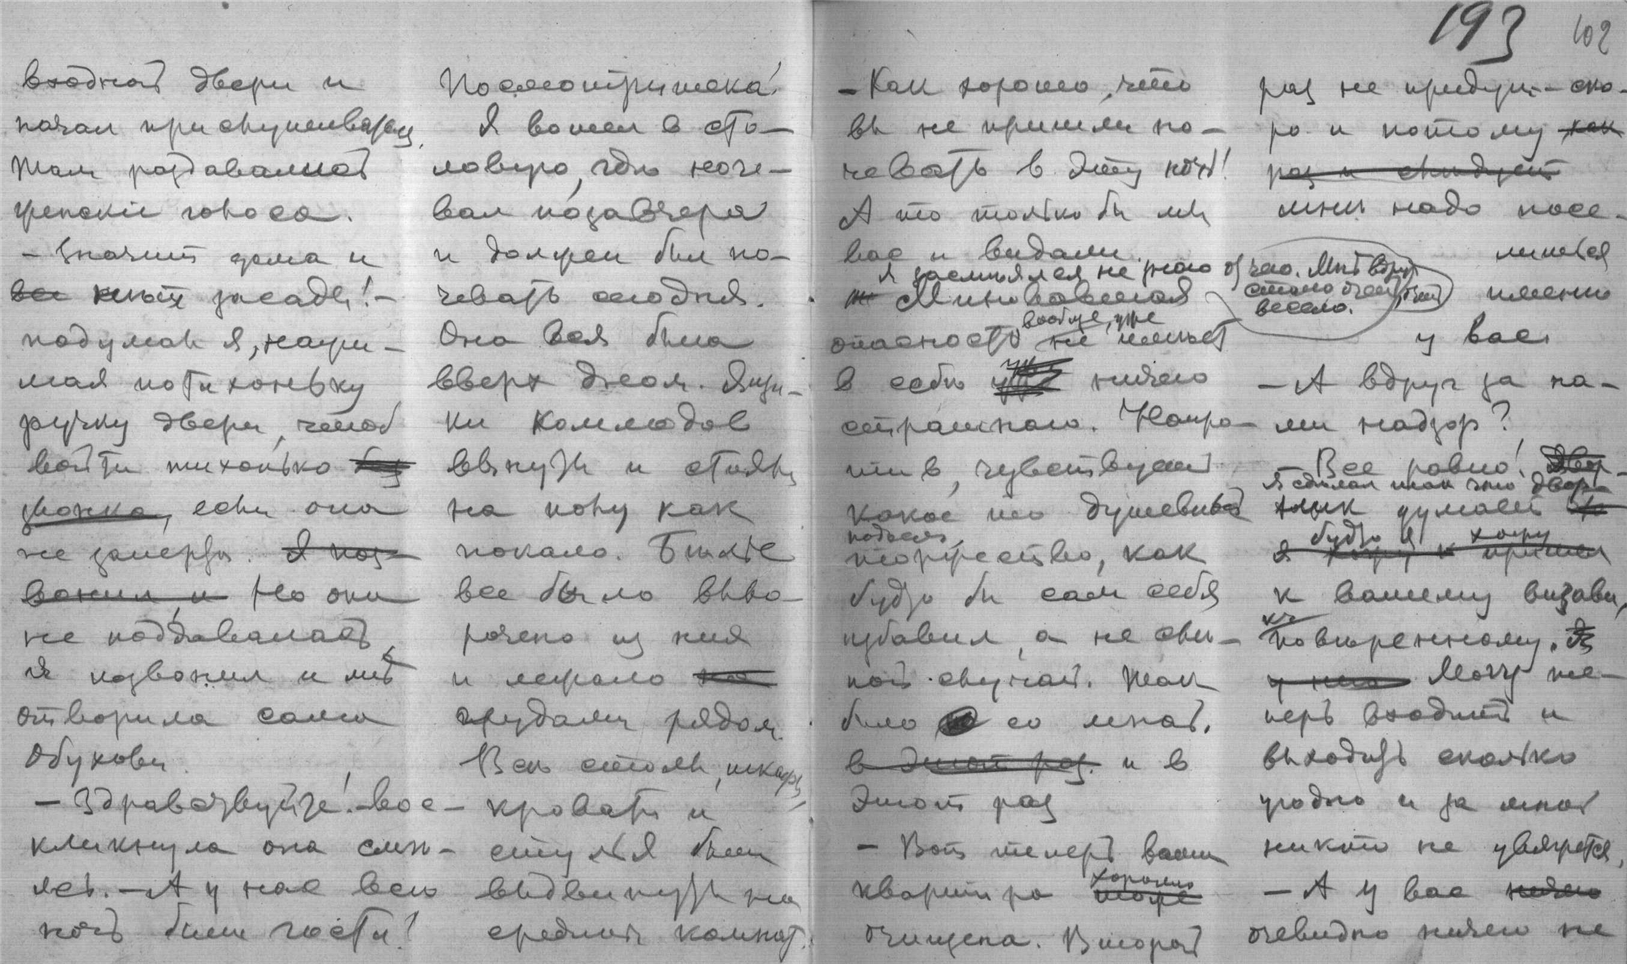 193
102
входной двери и
начал прислушиваться,
Там раздавались
женскіе голоса.
– Значит дома и
все нѣт засады! –
подумал я, нажи-
мая потихоньку
ручку двери, чтоб
войти тихонько без
звонка, если она
не заперта. Я поз-
вонил, и Но она
не поддавалась,
я позвонил и мнѣ
отворила сама
Обухова.
– Здравствуйте! – вос-
кликнула она смѣ-
ясь. – А у нас всю
ночь были гости!
Посмотрите-ка!
Я вошел в сто-
ловую, гдѣ ноче-
вал позавчера
и должен был но-
чевать сегодня.
Она вся была
вверх дном. Ящи-
ки комодов
вынуты и стоят
на полу как
попало. Бѣлье
все было выво-
рочено из них
и лежало
грудами рядом.
Всѣ столы, шкафы,
кровати и
стулья были
выдвинуты на
средину комнат.
– Как хорошо, что
вы не пришли но-
чевать в эту ночь!
А то только бы мы
вас и видали.
Я засмѣялся не знаю от чего. Мнѣ вдруг
стало очень, очень
весело.
Миновавшая
опасность вообще, уже не имѣет
в себѣ ничего
страшнаго. Напро-
тив, чувствуешь
какое то душевный
подъем,
торжество, как
будто бы сам себя
избавил, а не слѣ-
пой случай. Так
было со мной.
в этот раз и в
этот раз
– Вот теперь ваша
квартира хорошо
очищена. Второй
раз не придут ско-
ро и потому как
раз и слѣдует
мнѣ надо посе-
литься
именно
у вас.
– А вдруг за на-
ми надзор?
– Все равно! Двор-
Я сдѣлал так что двор-
ник думает
будто я хожу
я хожу к пришел
к вашему визави,
повѣренному.
у них Могу те-
перь входить и
выходить сколько
угодно и за мной
никто не увяжется,
– А у вас ничего
очевидно ничего не